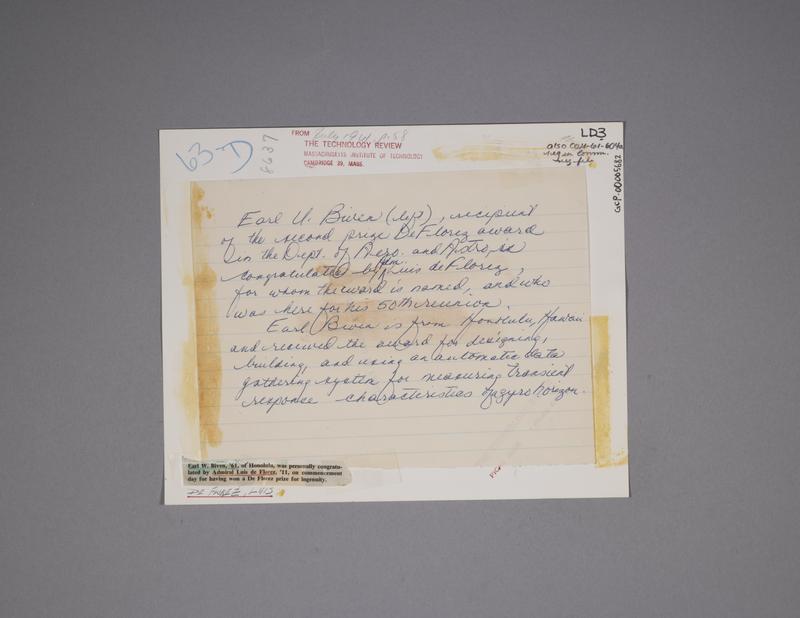 63-D
8637
FROM July 1961 p. 58
THE TECHNOLOGY REVIEW
MASSACHUSETTS INSTITUTE OF TECHNOLOGY
CAMBRIDGE 39, MASS.
LD3
also
neg in Comm.
neg file
GCP-00005682
Earl W. Biven (left), recipient
of the second prize DeFlorez award
in the Dept. of Aero. and Astro, is
congratulated by Adm. Luis deFlorez,
for whom the award is named, and who
was here for his 50th reunion.
Earl Biven is from Honolulu, Hawaii
and received the award for designing,
building, and using an automatic data
gathering system for measuring transient
response characteristics of a gyro horizon.
Earl W. Biven, '61, of Honolulu, was personally congratu-
lated by Admiral Luis de Florez, '11, on commencement
day for having won a De Florez prize for ingenuity.
DE FLOREZ, LUIS